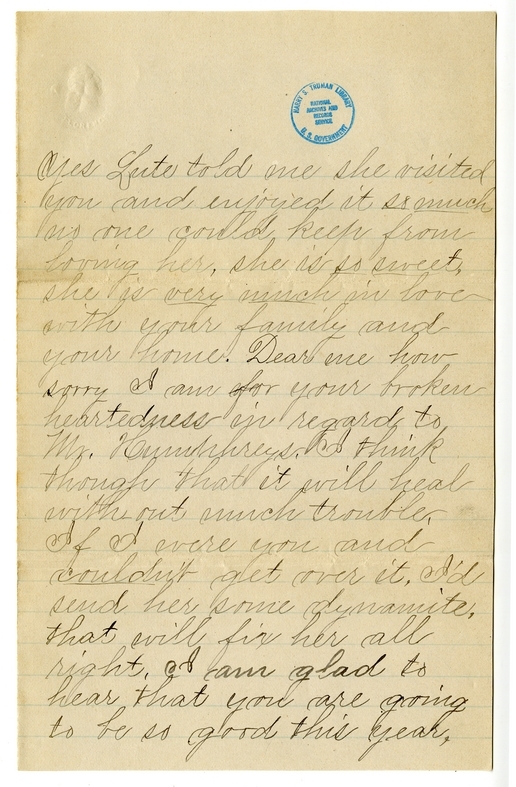 HARRY S. TRUMAN LIBRARY
NATIONAL
ARCHIVES AND
RECORDS
SERVICE
U. S. GOVERNMENT
Yes Lute told me she visited
you and enjoyed it so much
no one could keep from
loving her, she is so sweet,
she is very much in love
with your family and
your home. Dear me how
sorry I am for your broken
heartedness in regard to
Mr. Humphreys. I think
though that it will heal
without much trouble.
If I were you and
couldn't get over it, I'd
send her some dynamite,
that will fix her all
right. I am glad to
hear that you are going
to be so good this year,